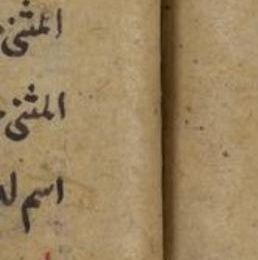 المثنى
المثنى
اسم له